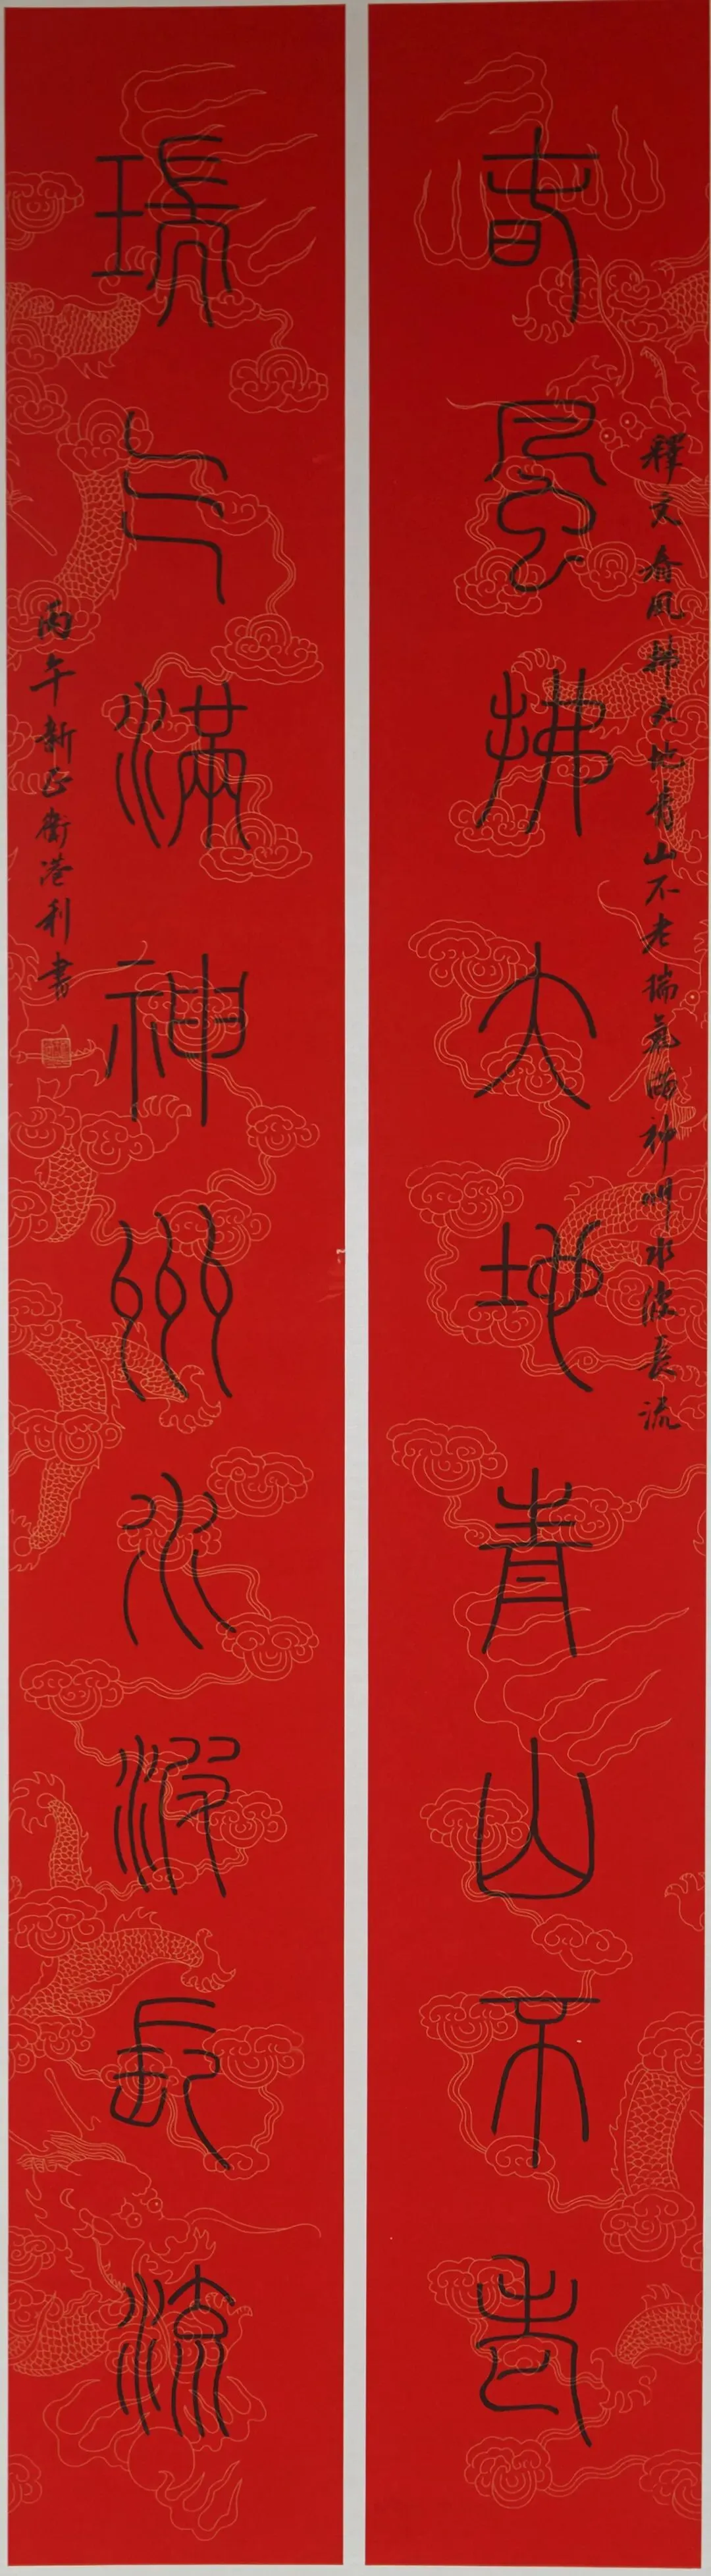 釋文春風拂大地青山不老瑞氣滿神州水波長流
春風拂大地青山不老
瑞气滿神州水波長流
丙午新正衛港利書